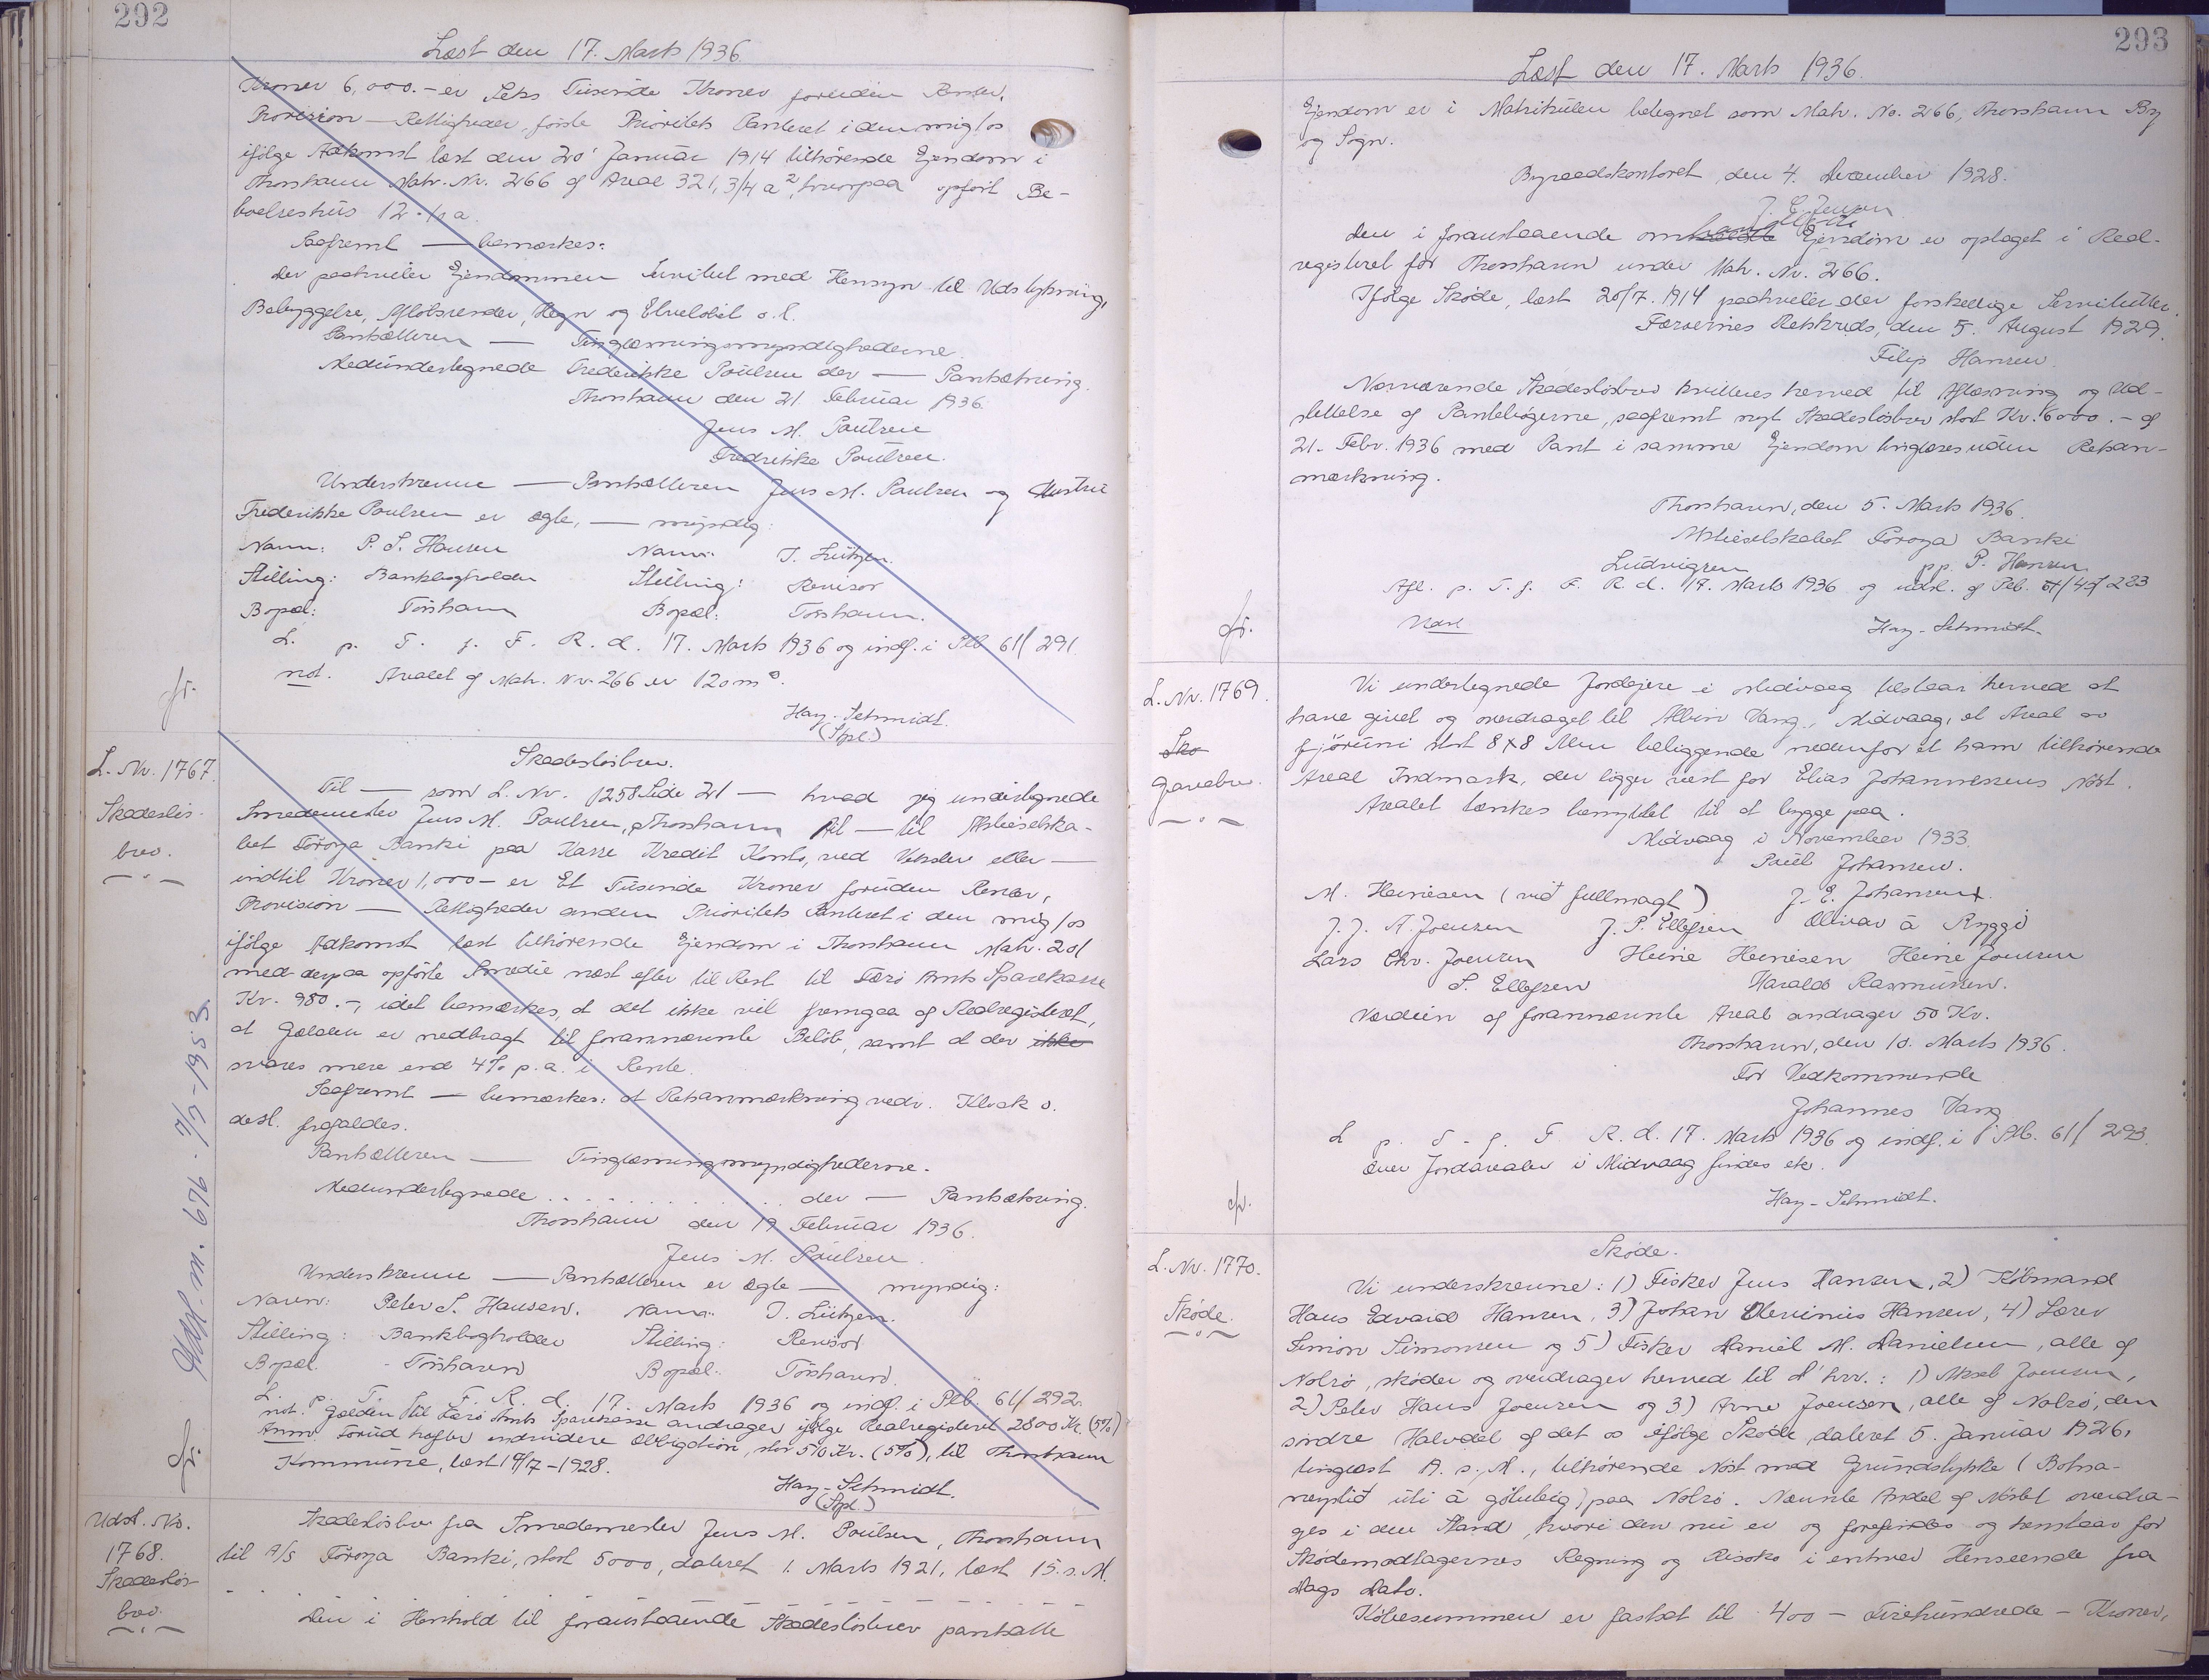 292
Læst den 17. Marts 1936.
Kroner 6,000.- er Seks Tusinde Kroner foruden Renter,
Provision — Rettigheder, første Prioritets Panteret i den mig/os
ifølge Adkomst læst den 20' Januar 1914 tilhørende Ejendom i
Thorshavn Matr. Nr. 266 af Areal 321,3/4 a², hvorpaa opført Be-
boelseshus 12
Saafremt — bemærkes:
Der paahviler Ejendommen Servitut med Hensyn til Udstykning,
Bebyggelse, Afløbsrender, Hegn og Elveløbet o.l.
Panthaveren — Tinglæsningsmyndighederne.
Medundertegnede Frederikke Poulsen der — Pantsætning.
Thorshavn den 21. Februar 1936.
Jens M. Poulsen
Fredrikke Poulsen.
Underskrevne — Pantsætteren Jens M. Paulsen og Hustru
Frederikke Poulsen er ægte, — myndig:
Navn: P. S. Hansen Navn: J. Lützen.
Stilling: Bankbogholder Stilling: Revisor
Bopæl: Tórshavn Bopæl: Torshavn.
L. p. T. f. F. R. d. 17. Marts 1936 og indf. i Ptb 61/291.
not. Arealet af Matr. Nr. 266 er 120 m².
fr.
Hay-Schmidt.
(Spl.)
L. Nr. 1767.
Skadesløs-
brev.
Skadesløsbrev.
Til — som L. Nr. 1258 Side 21 — hvad jeg undertegnede
Smedemester Jens M. Poulsen, Thorshavn til — til Aktieselska-
bet Föroya Banki paa Kasse Kredit Konto, ved Veksler eller —
indtil Kroner 1,000 - er Et Tusinde Kroner foruden Renter,
Provision — Rettigheder anden Prioritets Panteret i den mig/os
ifølge Adkomst læst tilhørende Ejendom i Thorshavn Matr. 201
med derpaa opførte Smedie næst efter til Rest til Færø Amts Sparekasse
Kr. 980.-, idet bemærkes, at det ikke vil fremgaa af Realregistret,
at Gælden er nedbragt til forannævnte Beløb, samt at der ikke
svares mere end 4% p.a. i Rente.
Saafremt — bemærkes: at Retsanmærkning vedr. Kloak o.
desl. frafaldes.
Panthaveren — Tinglæsningsmyndighederne.
Medundertegnede . . . . . . . . . . der — Pantsætning.
Thorshavn den 19 Februar 1936.
Jens M. Poulsen.
Underskrevne — Pantsætteren er ægte — myndig:
Navn: Peter S. Hansen. Navn: J. Lützen.
Stilling: Bankbogholder Stilling: Revisor
Bopæl: Tórshavn Bopæl: Tórshavn.
L. p. T. f. F. R. d. 17. Marts 1936 og indf. i Ptb. 61/292.
not. Gælden til Færø Amts Sparekasse andrager ifølge Realregistret 2800 Kr. (5%)
Anm. Forud hæfter endvidere Obligation, stor 510 Kr. (5%), til Thorshavn
Kommune, læst 17/7-1928.
fr.
Hay-Schmidt.
(Spl.)
Udsl. m. 676 - 7/7-1953
Udsl. No.
1768.
Skadesløs-
brev.
Skadesløsbrev fra Smedemester Jens M. Poulsen, Thorshavn
til A/S Föroya Banki, stort 5000, dateret 1. Marts 1921, læst 15. s. M.
Den i Henhold til foranstaaende Skadesløsbrev pantsatte
293
Læst den 17. Marts 1936.
Ejendom er i Matrikulen betegnet som Matr. No. 266, Thorshavn By
og Sogn.
Byraadskontoret, den 4. December 1928.
J. C. Jensen
Den i foranstaaende omhandlede Ejendom er optaget i Real-
registret for Thorshavn under Matr. Nr. 266.
Ifølge Skøde, læst 20/7. 1914 paahviler der forskellige Servitutter.
Færøernes Retskreds, den 5. August 1929.
Filip Hansen.
Nærværende Skadesløsbrev kvitteres herved til Aflæsning og Ud-
slettelse af Pantebøgerne, saafremt nyt Skadesløsbrev stort Kr. 6000.- af
21. Febr. 1936 med Pant i samme Ejendom tinglæses uden Retsan-
mærkning.
Thorshavn, den 5. Marts 1936.
Aktieselskabet Föroya Banki
Ludvigsen pp. P. Hansen
Afl. p. T. f. F. R. d. 17. Marts 1936 og udsl. af Ptb. 283
fr.
Hay-Schmidt.
L. Nr. 1769.
Sko
Gavebrev.
Vi undertegnede Jordejere i Midvaag tilstaar herved at
have givet og overdraget til Albin Vang, Midvaag, et Areal av
fjøruni stort 8 x 8 Alen beliggende nedenfor et ham tilhørende
Areal Indmark, der ligger vest for Elias Johannessens Nøst.
Arealet tænkes benyttet til at bygge paa.
Midvaag i November 1933.
Poul Johansen.
M. Heinesen (við fullmagt) J. E. Johansen
J. J. A. Joensen J. P. Ellefsen Ollivar á Ryggi
Lars Chr. Joensen Heine Heinesen Heine Joensen
S. Ellefsen Harald Rasmussen.
Værdien af forannævnte Areal andrager 50 Kr.
Thorshavn, den 10. Marts 1936.
For Vedkommende
Johannes Vang
L p. T. f. F. R. d. 17. Marts 1936 og indf. i Ptb. 61/293.
Over Jordarealer i Midvaag findes ek.
Hay-Schmidt.
L. Nr. 1770.
Skøde.
Skøde.
Vi underskrevne: 1) Fisker Jens Hansen, 2) Købmand
Hans Edvard Hansen, 3) Johan Severinus Hansen, 4) Lærer
Simon Simonsen og 5) Fisker Daniel M. Danielsen, alle af
Nolsø, skøder og overdrager herved til d' hrr.: 1) Aksel Joensen,
2) Peter Hans Joensen og 3) Arne Joensen, alle af Nolsø, den
søndre Halvdel af det os ifølge Skøde, dateret 5. Januar 1926,
tinglæst 19. s. M., tilhørende Nøst med Grundstykke (Botna-
neystið úti á gøtubeig) paa Nolsø. Nævnte Andel af Nøstet overdra-
ges i den Stand, hvori den nu er og forefindes og henstaar for
Skødemodtagernes Regning og Risiko i enhver Henseende fra
Dags Dato.
Købesummen er fastsat til 400 - Firehundrede - Kroner,